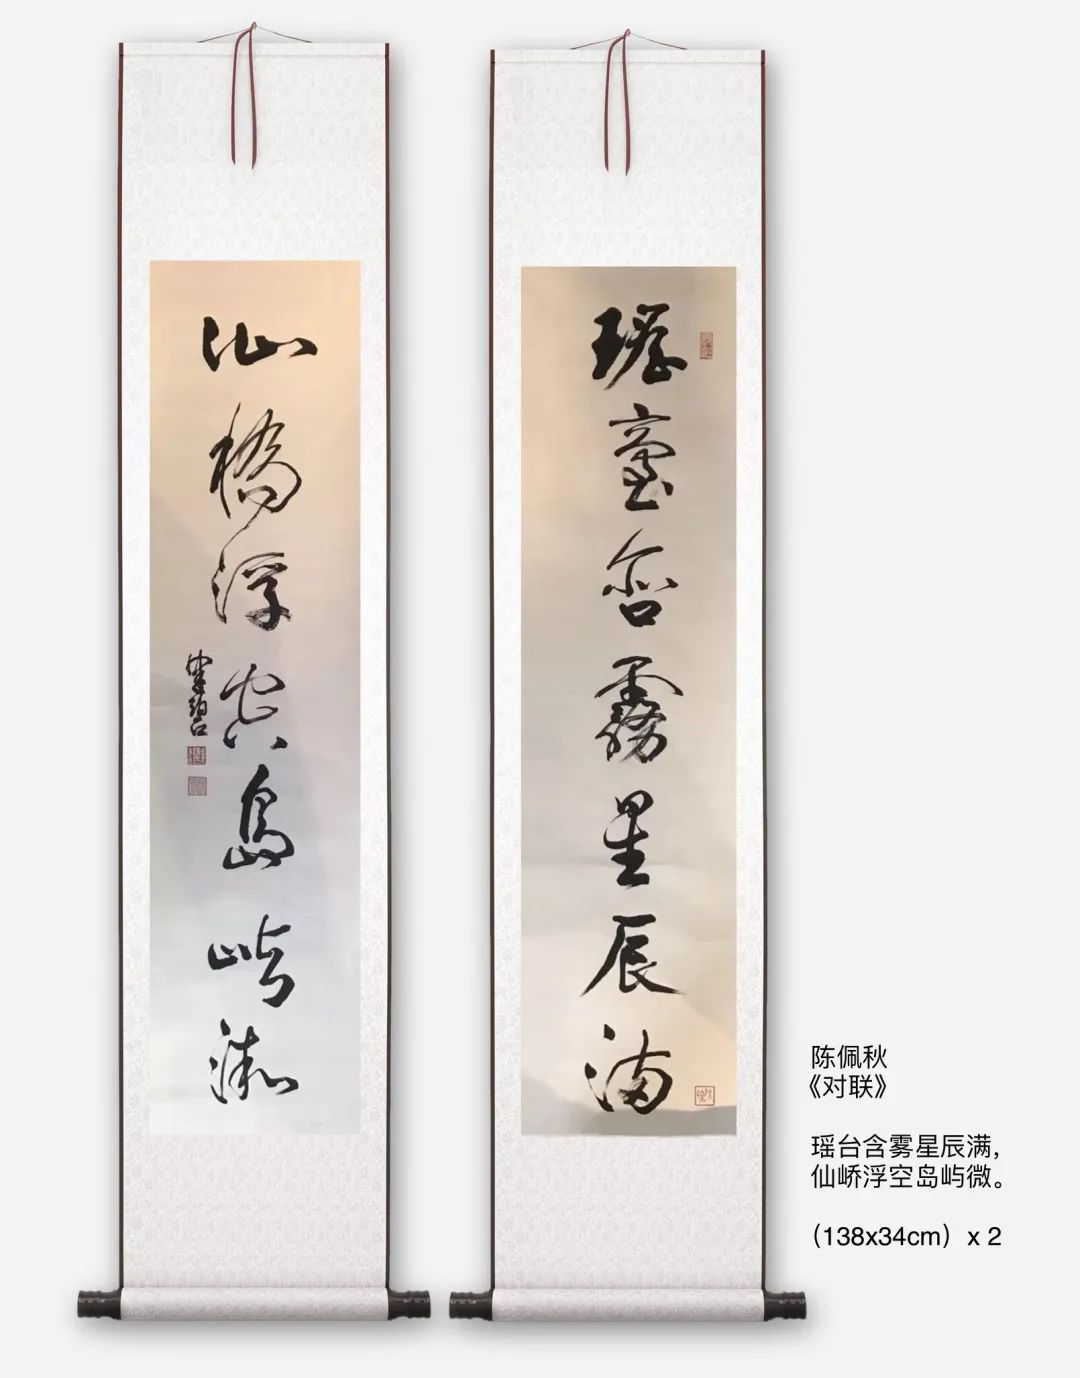 瑶臺含霧星辰滿
仙橋浮空島嶼微
健碧
陈佩秋
《对联》
瑶台含雾星辰满，
仙峤浮空岛屿微。
（138x34cm）x 2